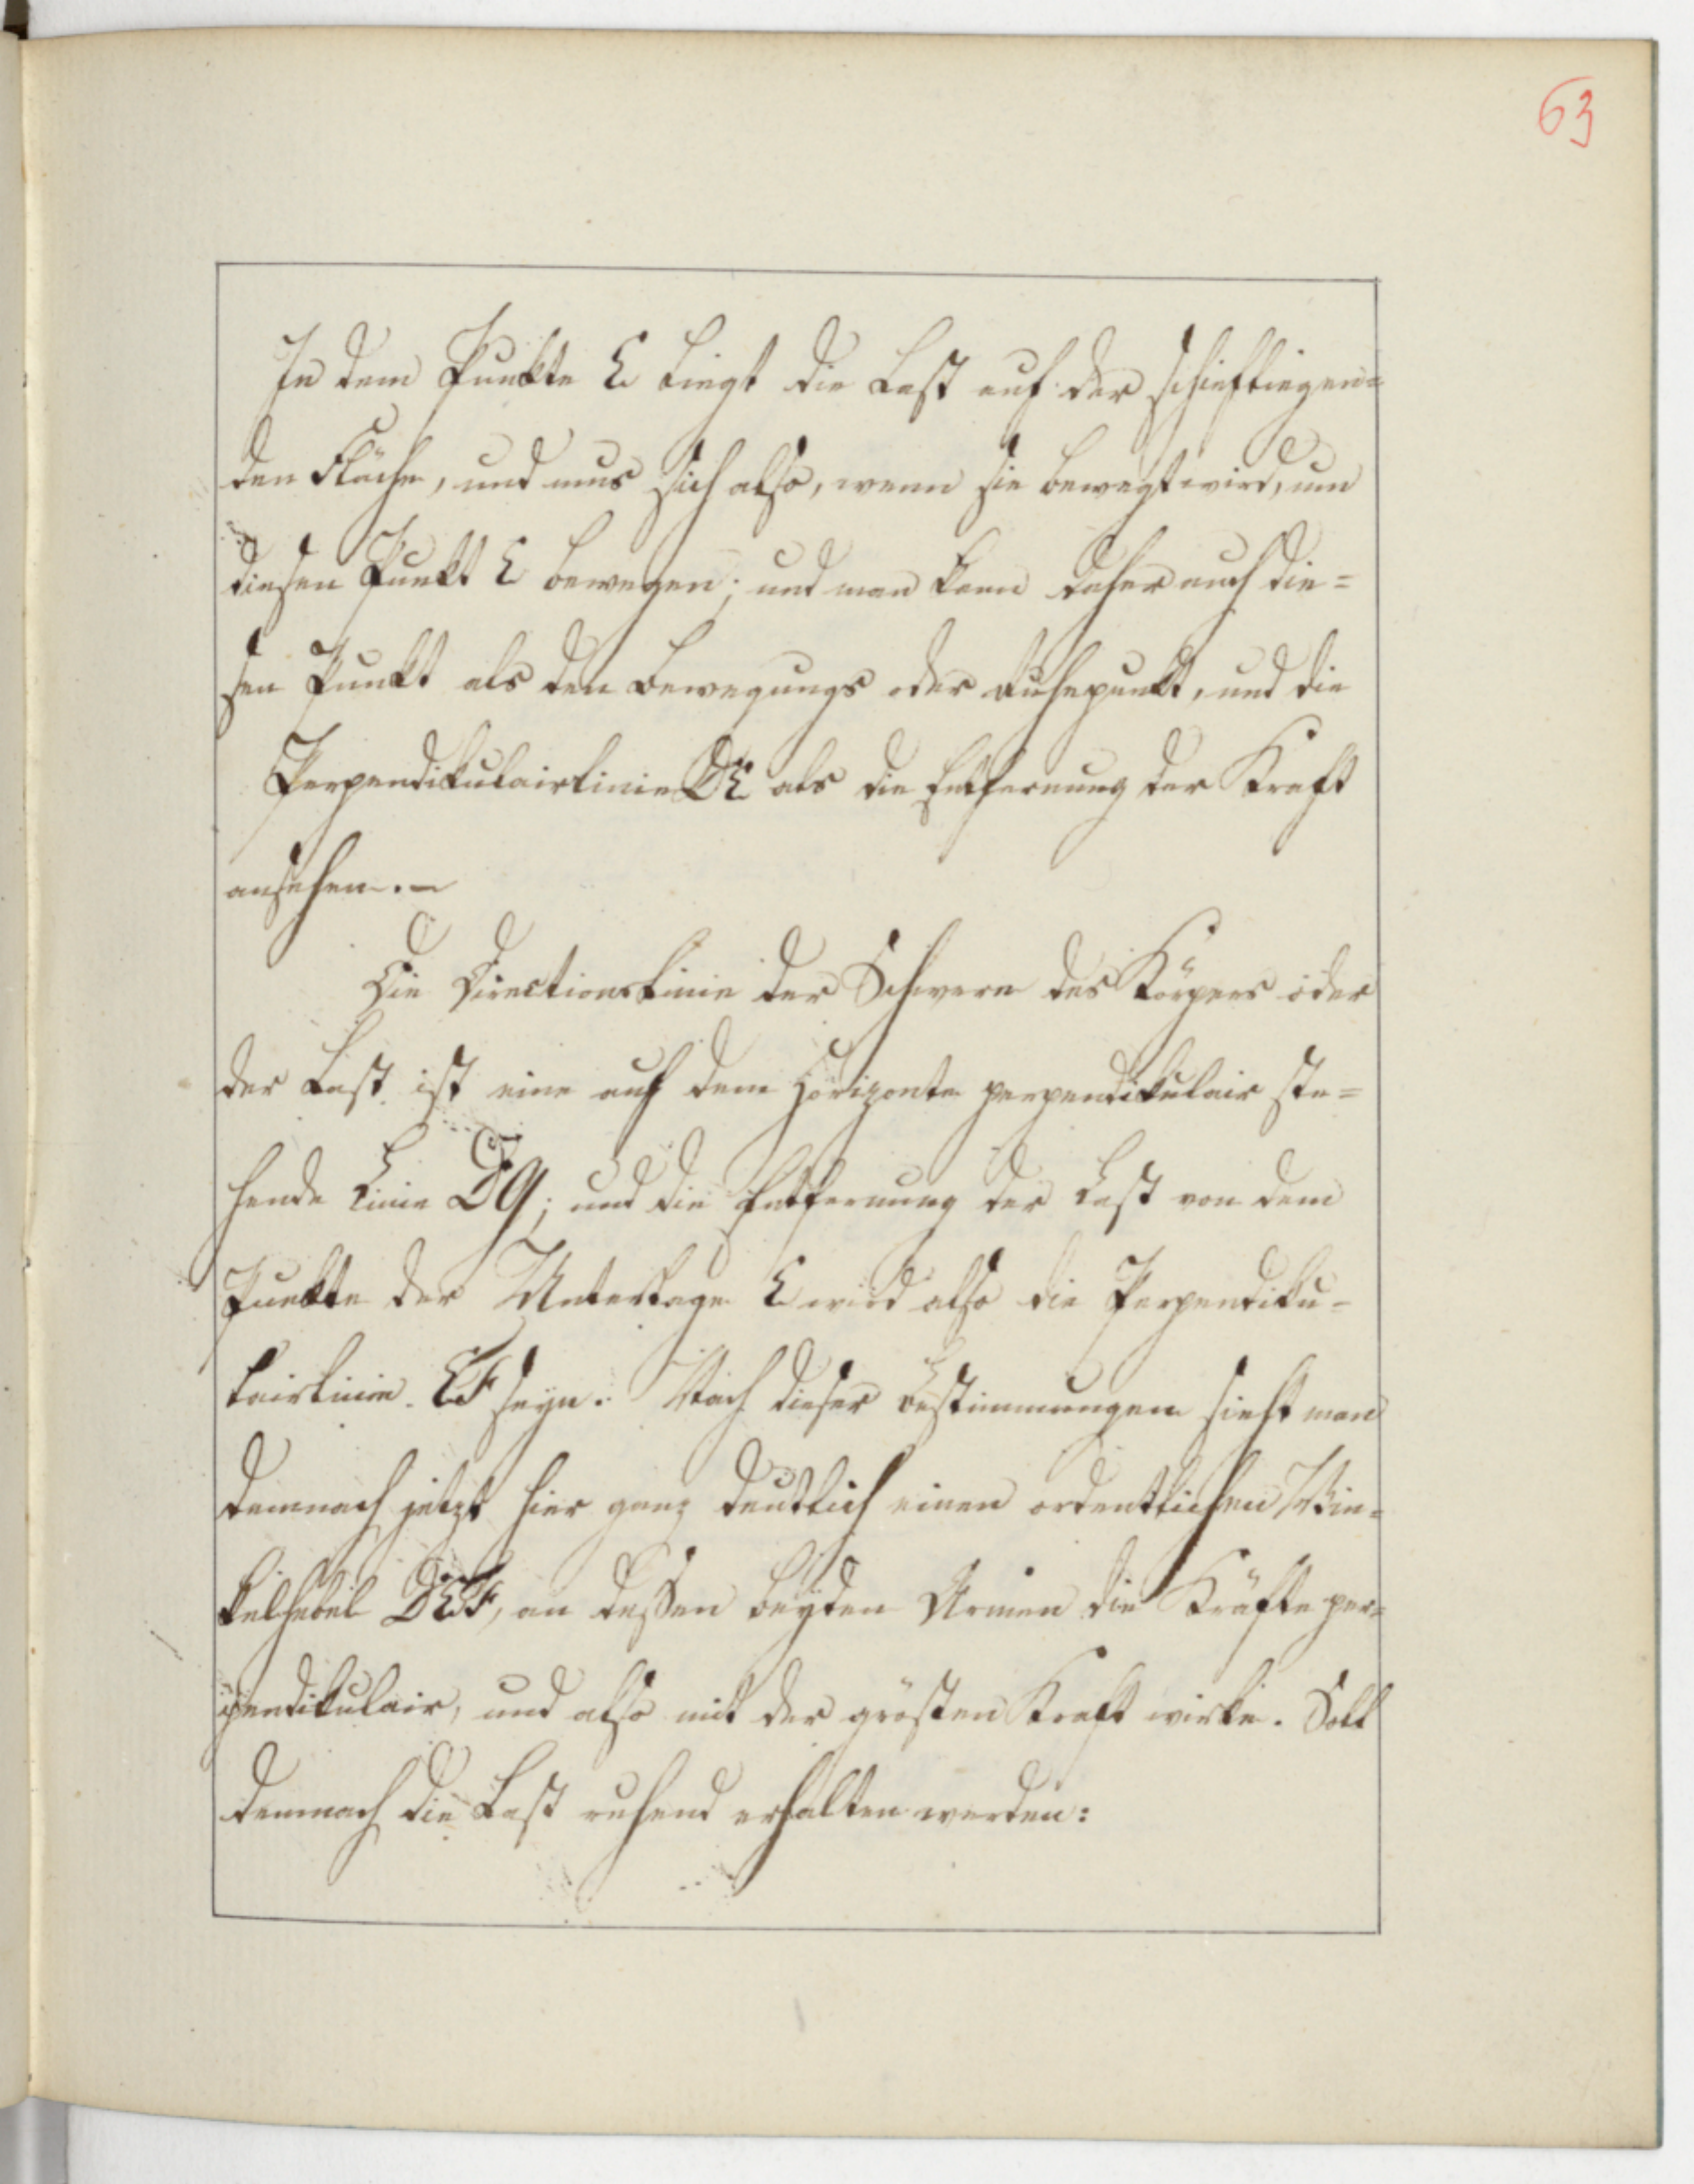 63
In dem Punkte E liegt die Last auf der schiefliegen=
den Fläche, und mus sich also, wenn sie bewegt wird, um
diesen Punkt E bewegen; und man kann daher auch die=
sen Punkt als den Bewegungs oder Ruhepunkt, und die
Perpendikulairlinie DE als die Entfernung der Kraft
ansehen. —
Die Directionslinie der Schwere des Körpers oder
der Last ist eine auf dem Horizonte perpendikulair ste=
hende Linie DG; und die Entfernung der Last von dem
Punkte der Unterlage E wird also die Perpendiku=
lairlinie EF seyn. Nach dieser Bestimmungen sieht man
demnach jetzt hier ganz deutlich einen ordentlichen Win=
kelhebel DEF, an dessen beyden Armen die Kräfte per=
pendikulair, und also mit der grösten Kraft wirke. Soll
demnach die Last ruhend erhalten werden: